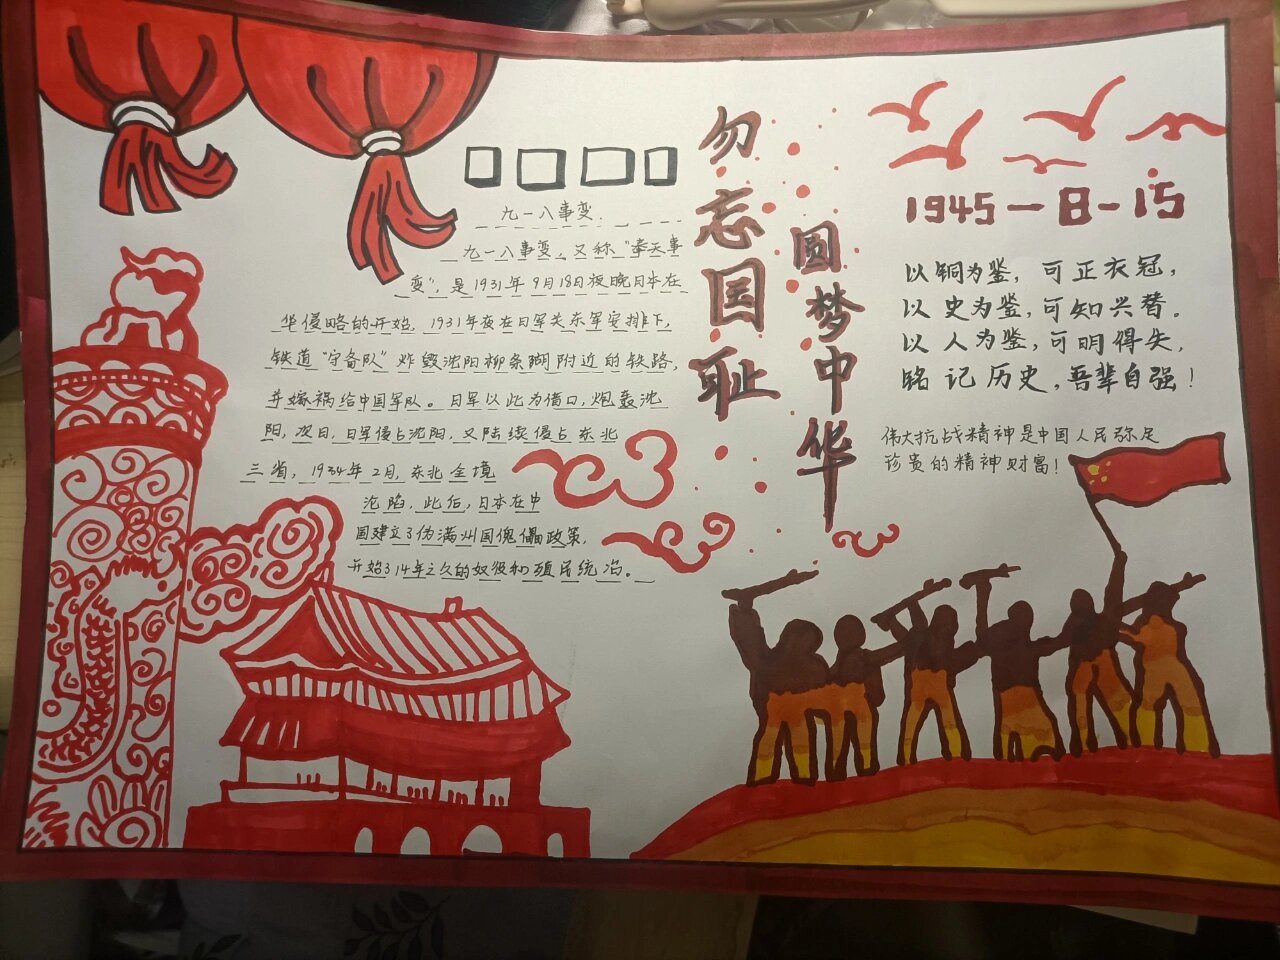 九一八事变.
九一八事变，又称“奉天事
变”，是1931年9月18日夜晚日本在
华侵略的开始，1931年夜在日军关东军安排下，
铁道“守备队”炸毁沈阳柳条湖附近的铁路，
并嫁祸给中国军队。日军以此为借口，炮轰沈
阳，次日，日军侵占沈阳，又陆续侵占东北
三省，1934年2月，东北全境
沦陷，此后，日本在中
国建立了伪满州国傀儡政策，
开始了14年之久的奴役和殖民统治。
勿忘国耻
圆梦中华
1945-8-15
以铜为鉴，可正衣冠，
以史为鉴，可知兴替。
以人为鉴，可明得失，
铭记历史，吾辈自强！
伟大抗战精神是中国人民弥足
珍贵的精神财富！